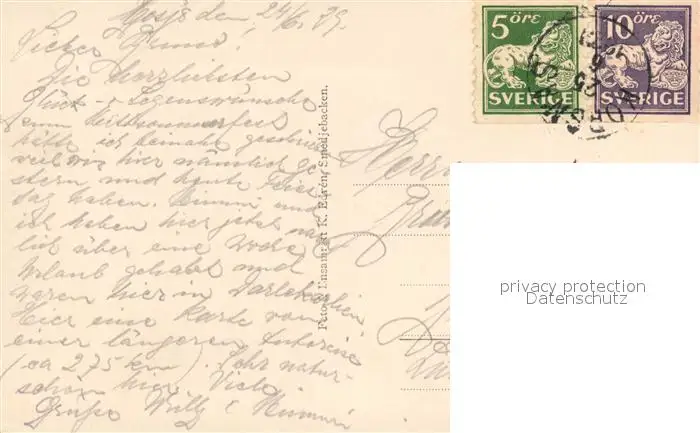 den, 24/6. 29.
Lieber
Die herzlichsten
Glück- u Segenswünsche
zum Mittsommerfest
hätte ich beinahe geschrie
weil wir hier nämlich ge
stern und heute Feier
tag haben. Mimmi und
ich haben hier jetzt näm
lich über eine Woche
Urlaub gehabt und
waren hier in Darlekarlien
Hier eine Karte von
einer längeren Autoreise
(ca 275 km). Sehr natur-
schön hier. Viele
Grüße Willy u Mimmi
Foto o. Ensamrätt K. Edrén, Smedjebacken.
5 ÖRE
SVERIGE
10 ÖRE
SVERIGE
Herrn
privacy protection
Datenschutz